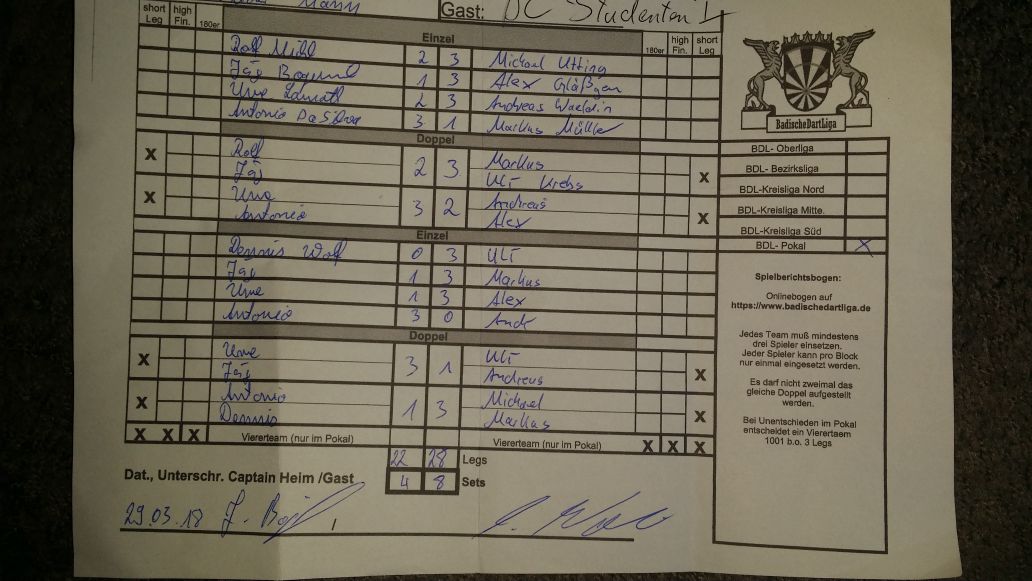 short Leg high Fin. 180er Gast: DC Studenten 1 180er high Fin. short Leg
Einzel
Rolf 2 3 Michael Utting
Jäg 1 3 Alex Gläßgen
Uwe 2 3 Andreas
Antonio DaSilva 3 1 Markus Müller
BadischeDartLiga
Doppel
X Rolf Jäg 2 3 Markus Uli Krebs X
X Uwe Antonio 3 2 Andreas Alex X
Einzel
Dennis Wolf 0 3 Uli
Jäg 1 3 Markus
Uwe 1 3 Alex
Antonio 3 0 Andr
Doppel
X Uwe Jäg 3 1 Uli Andreas X
X Antonio Dennis 1 3 Michael Markus X
X X X Viererteam (nur im Pokal) Viererteam (nur im Pokal) X X X
22 28 Legs
Dat., Unterschr. Captain Heim /Gast 4 8 Sets
29.03.18
BDL- Oberliga
BDL- Bezirksliga
BDL-Kreisliga Nord
BDL-Kreisliga Mitte.
BDL-Kreisliga Süd
BDL- Pokal X
Spielberichtsbogen:
Onlinebogen auf
https://www.badischedartliga.de
Jedes Team muß mindestens
drei Spieler einsetzen.
Jeder Spieler kann pro Block
nur einmal eingesetzt werden.
Es darf nicht zweimal das
gleiche Doppel aufgestellt
werden.
Bei Unentschieden im Pokal
entscheidet ein Viererteam
1001 b.o. 3 Legs